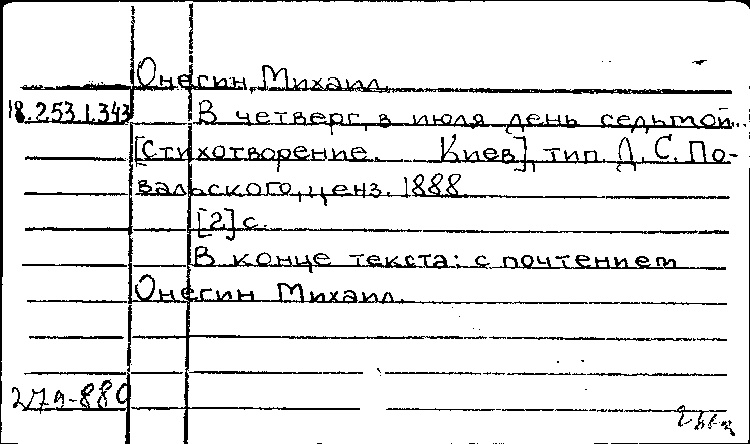 Онегин, Михаил.
18.253.1.343 В четверг, в июля день седьмой..
[Стихотворение. Киев], тип. Д. С. По-
вальского, ценз. 1888.
[2] с.
В конце текста: с почтением
Онегин Михаил.
279-880